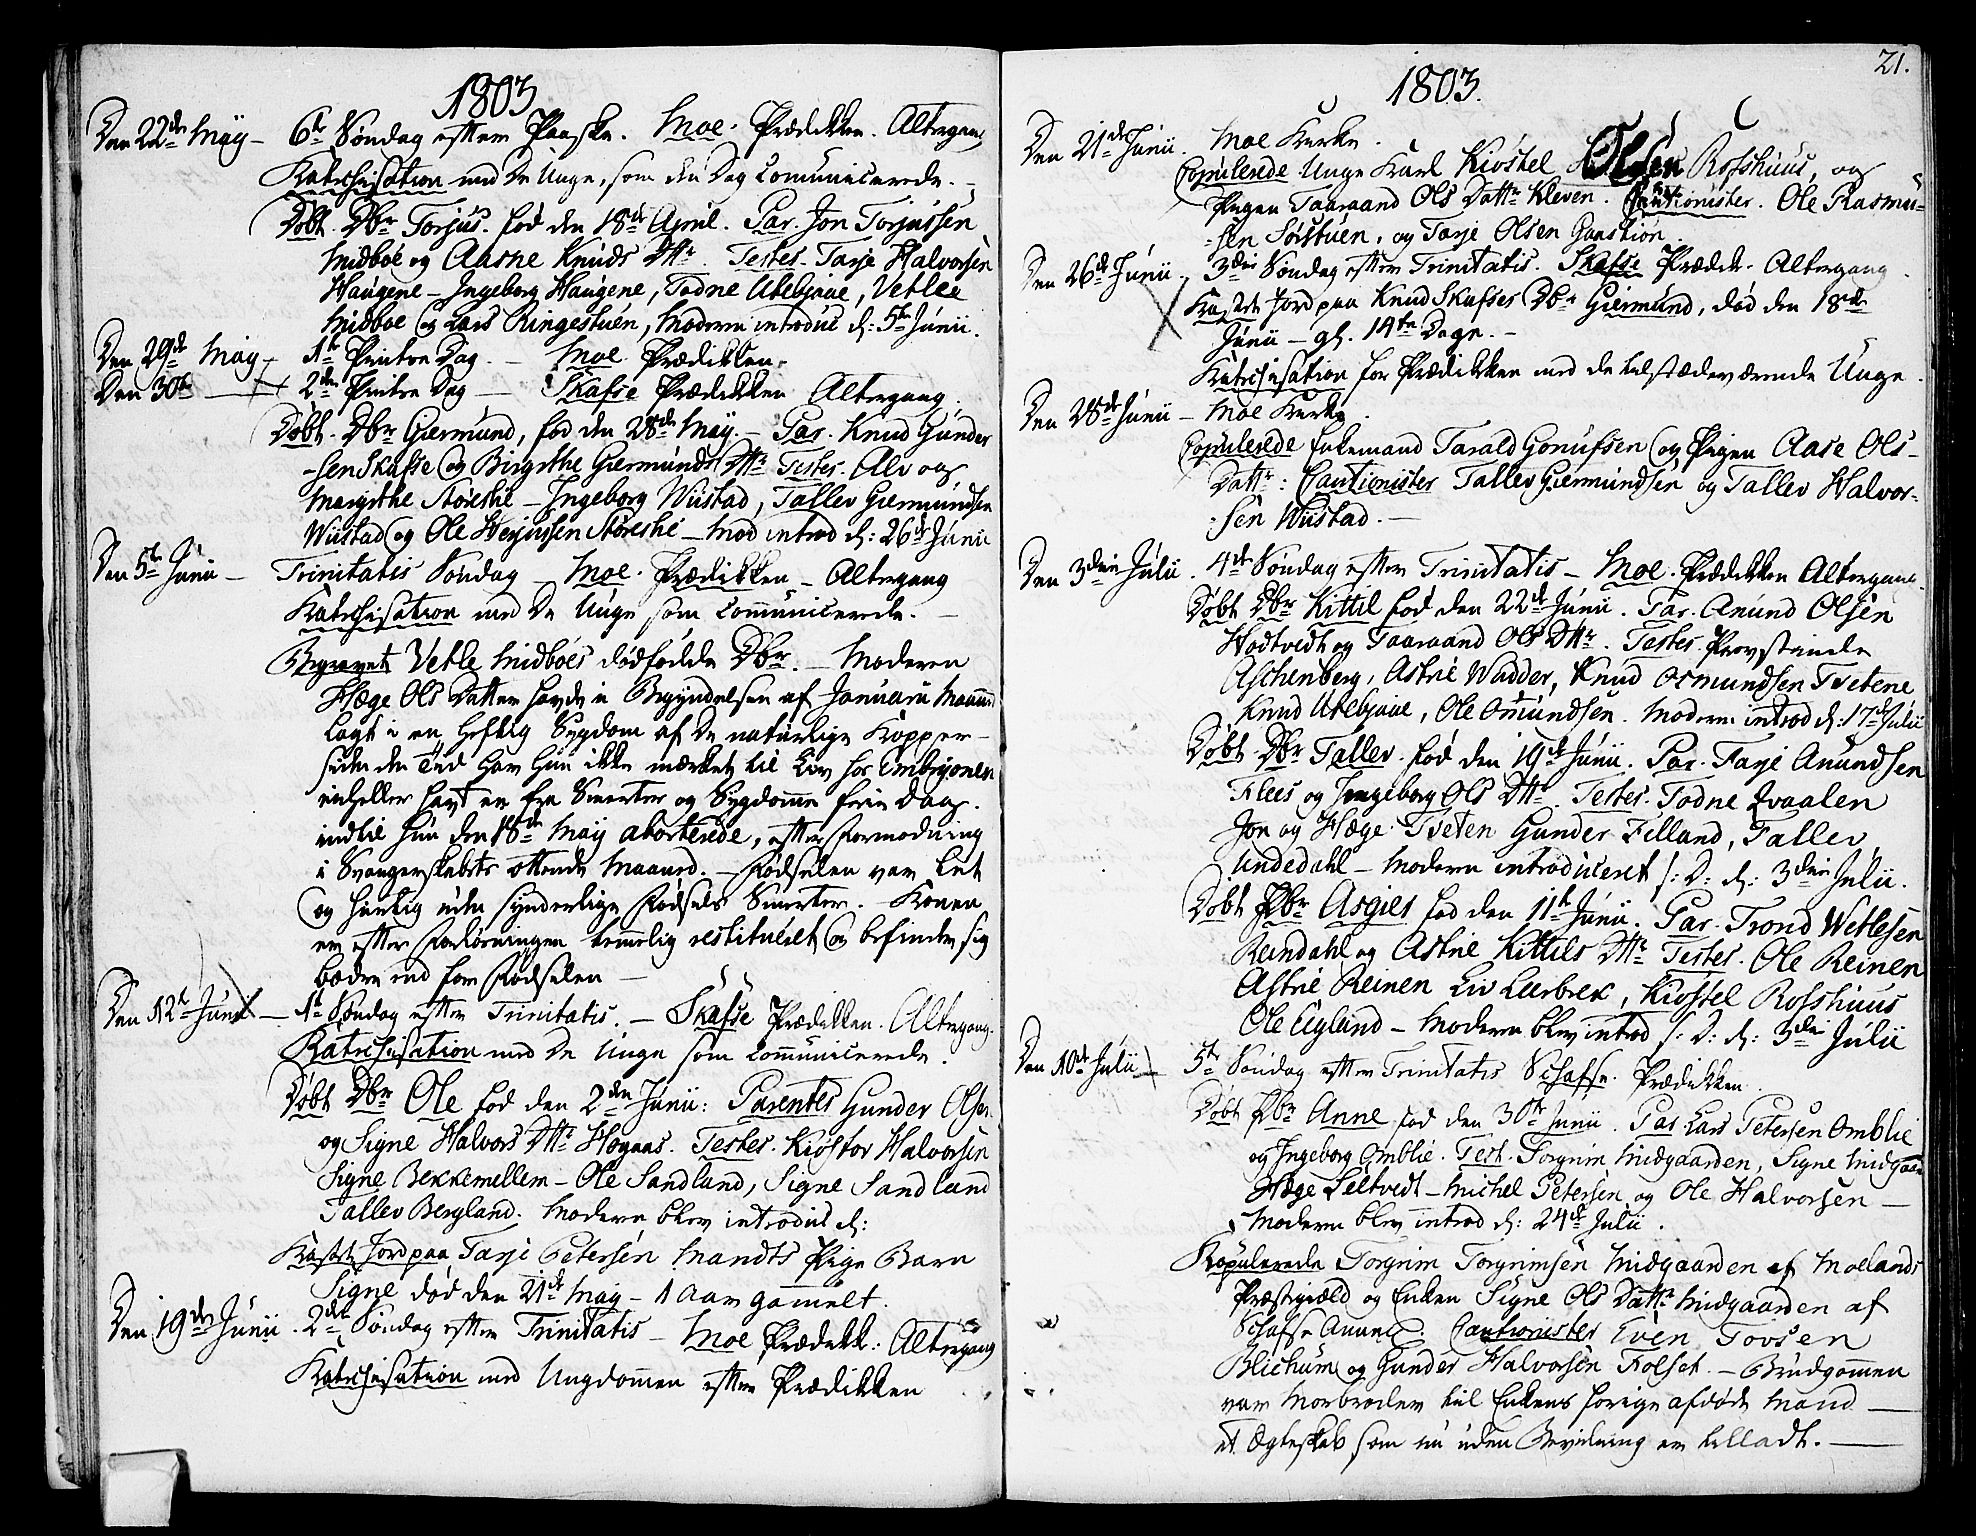 1803
Den 22de Maÿ – 6te Søndag efter Paaske. Moe. Prædikken. Altergang
Katechisation med De Unge, som den Dag communicerede. –
Døbt. DBr Torjus. fød den 18de April. Par. Jon Torjussen
Midboe og Aasne Knuds Dttr. Testes. Tarje Halvorsen
Haugene – Ingeborg Haugene, Todne Utebjaae, Vetlee
Midboe og Lars Ringestuen, Moderen introduc d: 5te Junii.
Den 29de Maÿ – 1te Pintse Dag. – Moe Prædikken.
Den 30te – 2den Pintse Dag – Skafse Prædikken Altergang.
Døbt. DBr Giermund, fød den 28de Maÿ. – Par. Knud Gunder
-sen Skafse og Birgithe Giermunds Dttr Testes. Alv og
Margithe Støreshi – Ingeborg Wiistad, Tallev Giermundsen
Wiistad og Ole Herjussen Støreshi – Mod introd d: 26de Junii
Den 5te Junii – Trinitatis Søndag – Moe. Prædikken – Altergang
Katechisation med De Unge som communicerede. –
Begravet Vetle Midboes dødfødde DBr. – Moderen
Hæge Ols Datter havde i Begyndelsen af Januarii Maaned
lagt i en heftig Sygdom af De naturlige Kopper –
siden den Tiid har hun ikke mærket til Liv hos Embryonen
eiheller havt en fra Smerter og Sygdomme frie Dag.
indtil hun den 18de Maÿ aborterede, efter Formodning
i Svangerskabets ottende Maaned. – Fødselen var let
og hastig uden synderlige Fødsels Smerter. – Konen
er efter Forløsningen temmelig restitueret og befinder sig
bedre end før Fødselen –
Den 12te Junii – 1te Søndag efter Trinitatis. – Skafse Prædikken. Altergang.
Katechisation med De Unge som communicerede.
Døbt DBr Ole fød den 2den Junii: Parentes Gunder Olsen
og Signe Halvors Dttr Høgaas. Testes. Kiøstov Halvorsen
Signe Bekkemellem – Ole Sandland, Signe Sandland
Tallev Bergland. Moderen blev introduc d:
Kastet Jord paa Tarje Petersen Mandts Pige Barn
Signe død den 21de Maÿ – 1 Aar gammelt.
Den 19de Junii. 2den Søndag efter Trinitatis – Moe Prædikk.: Altergang
Katechisation med Ungdommen efter Prædikken
21.
1803.
Den 21de Junii. Moe Kirke.
Copulerede Unge Karl Kiøstel Olsen Rosshuus, og
Pigen Taaraand Ols Dattr Kleven. Cautionister. Ole Rasmu-
-sen Sørstuen, og Tarje Olsen
Den 26de Junii. 3die Søndag efter Trinitatis. Skafse Prædik. Altergang.
Kastet Jord paa Knud Skafses DBr Giermund, død den 18de
Junii – gl. 14ten Dage. –
Katechisation for Prædikken med de tilstædeværende Unge.
Den 28de Junii – Moe Kirke.
Copulerede Enkemand Tarald Gonufsen og Pigen Aase Ols-
Dattr: Cautionister Tallev Giermundsen og Tallev Halvor-
-sen Wiistad. –
Den 3die Julii. 4de Søndag efter Trinitatis – Moe. Prædikken Altergang.
Døbt DBr Kittil fød den 22de Junii. Par. Anund Olsen
Hodtvedt og Taaraand Ols Dttr. Testes. Provstinde
Aschenberg, Astrie Wadder, Knud Osmundsen Tvetene
Knud Utebjaae, Ole Omundsen. Moderen introd d: 17de Julii
Døbt. DBr Tallev. fød den 19de Junii. Par. Tarje Anundsen
Flees og Ingeborg Ols Dttr. Testes. Todne Qvaalen
Jon og Hæge Tveten Gunder Felland, Tallev
Undedahl – Moderen introduceret s: D: d: 3die Julii.
Døbt PBr Asgier fød den 11te Junii. Par. Trond Wetlesen
Reindahl og Astrie Kittils Dttr Testes. Ole Reinen
Astrie Reinen Liv Leerbrek, Kiøstel Rosshuus
Ole Eigland – Moderen blev introd s: D: d: 3die Julii
Den 10de Julii – 5te Søndag efter Trinitatis Schafse. Prædikken.
Døbt PBr Anne fød den 30te Junii. Par Lars Petersen Omblie
og Ingeborg Omblie. Test. Torgrim Midgaarden, Signe Midgaar
Hæge Seltvedt – Michel Petersen og Ole Halvorsen –
Moderen blev introd d: 24de Julii.
Kopulerede Torgrim Torgrimsen Midgaarden af Moelands
Præstegiæld og Enken Signe Ols Dattr Midgaarden af
Schafse Annex. Cautionister Even Tovsen
Blichum og Gunder Halvorsen Folset. – Brudgommen
var Morbroder til Enkens forige afdøde Mand –
et Egteskab som nu uden Bevilning er tilladt. –